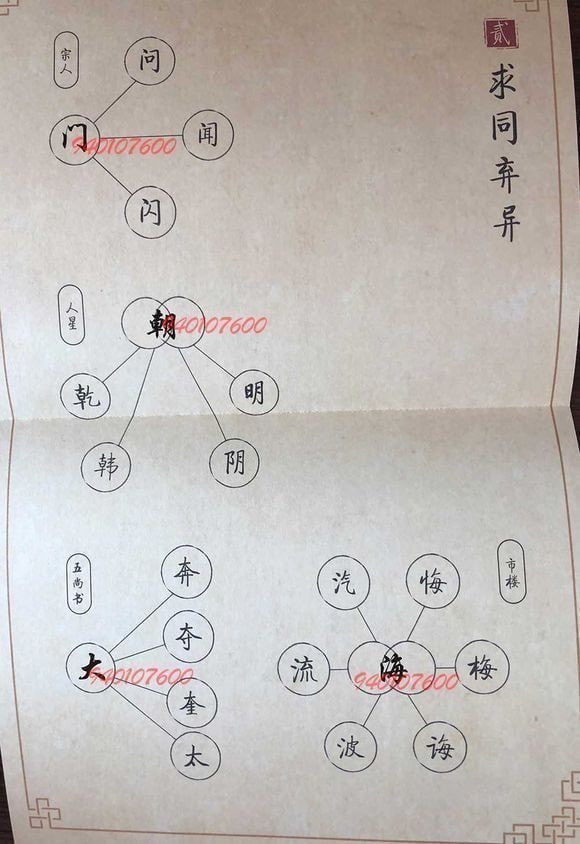 贰
求同弃异
宗人
问
门
闻
闪
940107600
人星
朝
940107600
乾
明
韩
阴
五尚书
奔
夺
大
940107600
奎
太
市楼
汽
悔
流
海
梅
940107600
波
诲